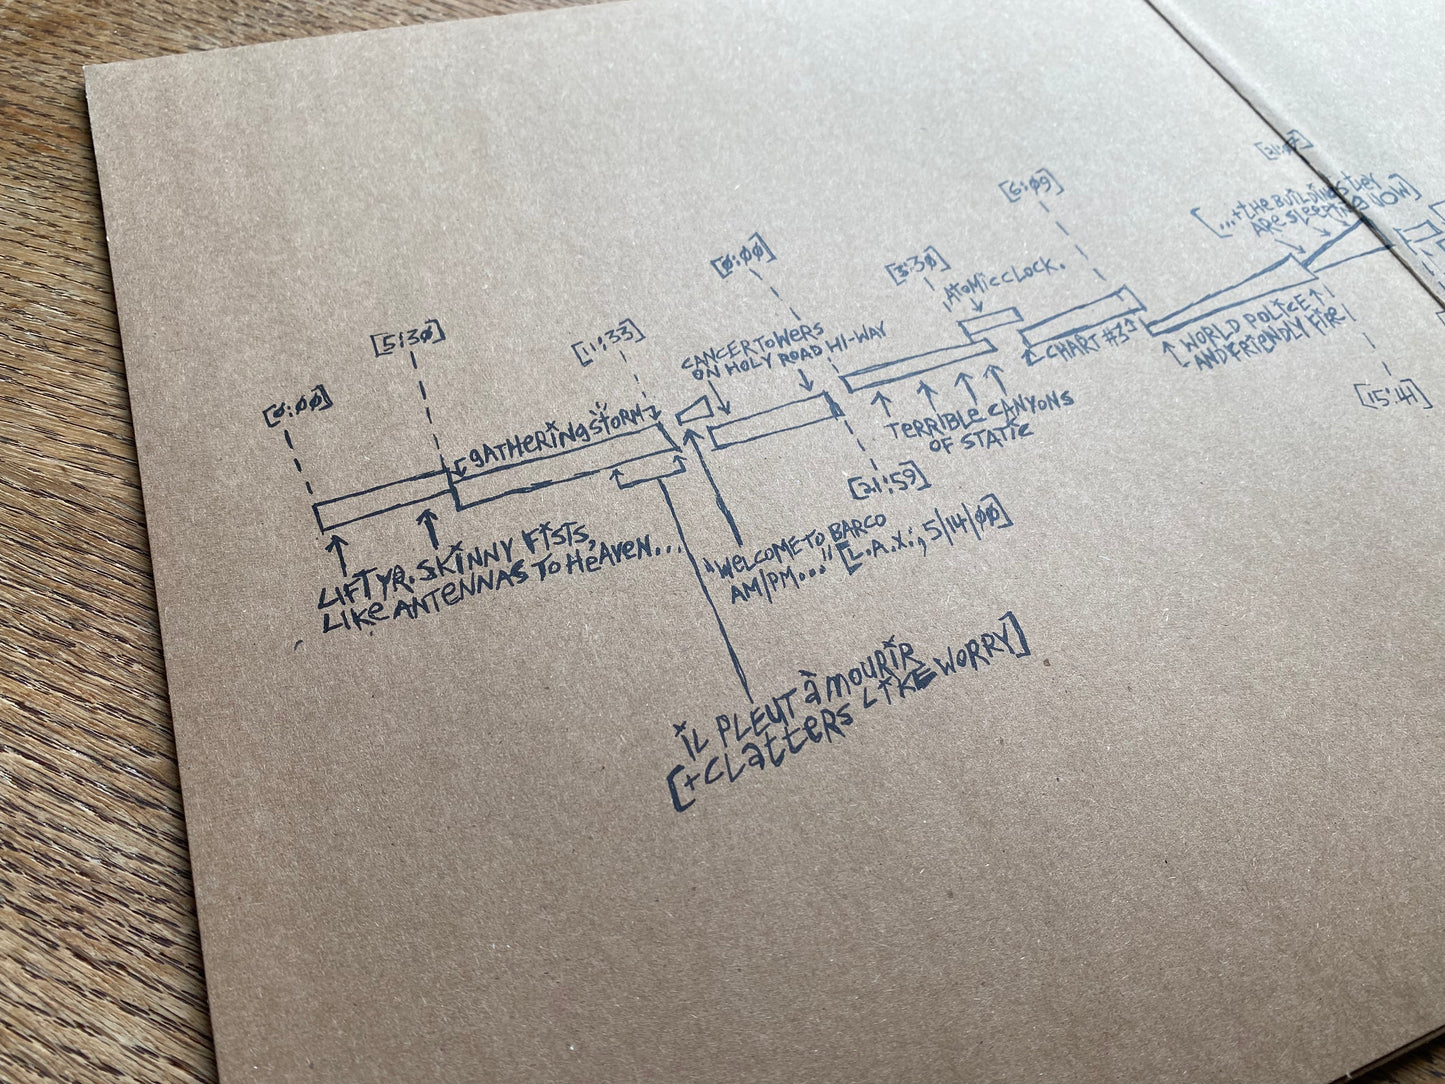 [0:00]
[5:30]
[11:33]
[0:00]
[3:30]
[6:09]
GATHERING STORM
CANCER TOWERS
ON HOLY ROAD HI-WAY
ATOMIC CLOCK.
CHART #3
[...+THE BUILDINGS THEY
ARE SLEEPING NOW]
WORLD POLICE
AND FRIENDLY FIRE
[15:41]
TERRIBLE CANYONS
OF STATIC
[21:59]
LIFT YR. SKINNY FISTS,
LIKE ANTENNAS TO HEAVEN...
"WELCOME TO BARCO
AM/PM..." [L.A.X.; 5/14/00]
IL PLEUT À MOURIR
[+CLATTERS LIKE WORRY]